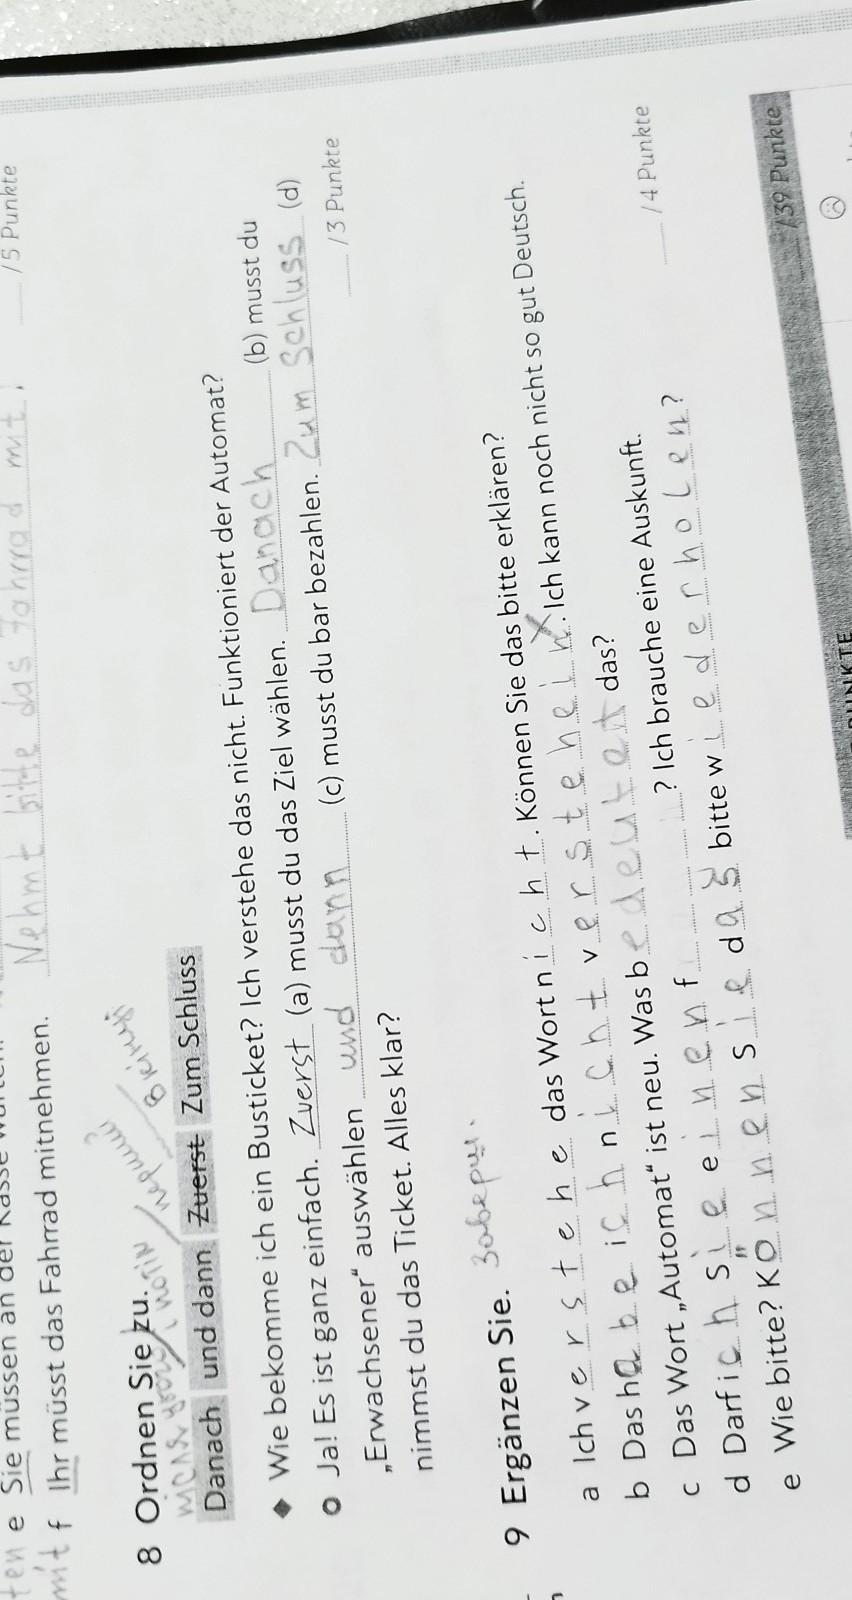 /5 Punkte
ten e Sie müssen an der Kasse
Nehmt bitte das Fahrrad mit!
mit f Ihr müsst das Fahrrad mitnehmen.
8 Ordnen Sie zu.
Danach und dann Zuerst Zum Schluss
◆ Wie bekomme ich ein Busticket? Ich verstehe das nicht. Funktioniert der Automat?
o Ja! Es ist ganz einfach. Zuerst (a) musst du das Ziel wählen. Danach (b) musst du
„Erwachsener“ auswählen und dann (c) musst du bar bezahlen. Zum Schluss (d)
nimmst du das Ticket. Alles klar?
/3 Punkte
9 Ergänzen Sie.
a Ich verstehe das Wort nicht. Können Sie das bitte erklären?
b Das habe ich nicht verstehein. Ich kann noch nicht so gut Deutsch.
c Das Wort „Automat“ ist neu. Was bedeutet das?
d Darf ich Sie einen f ? Ich brauche eine Auskunft.
e Wie bitte? Können sie das bitte wiederholen?
/4 Punkte
/39 Punkte
PUNKTE